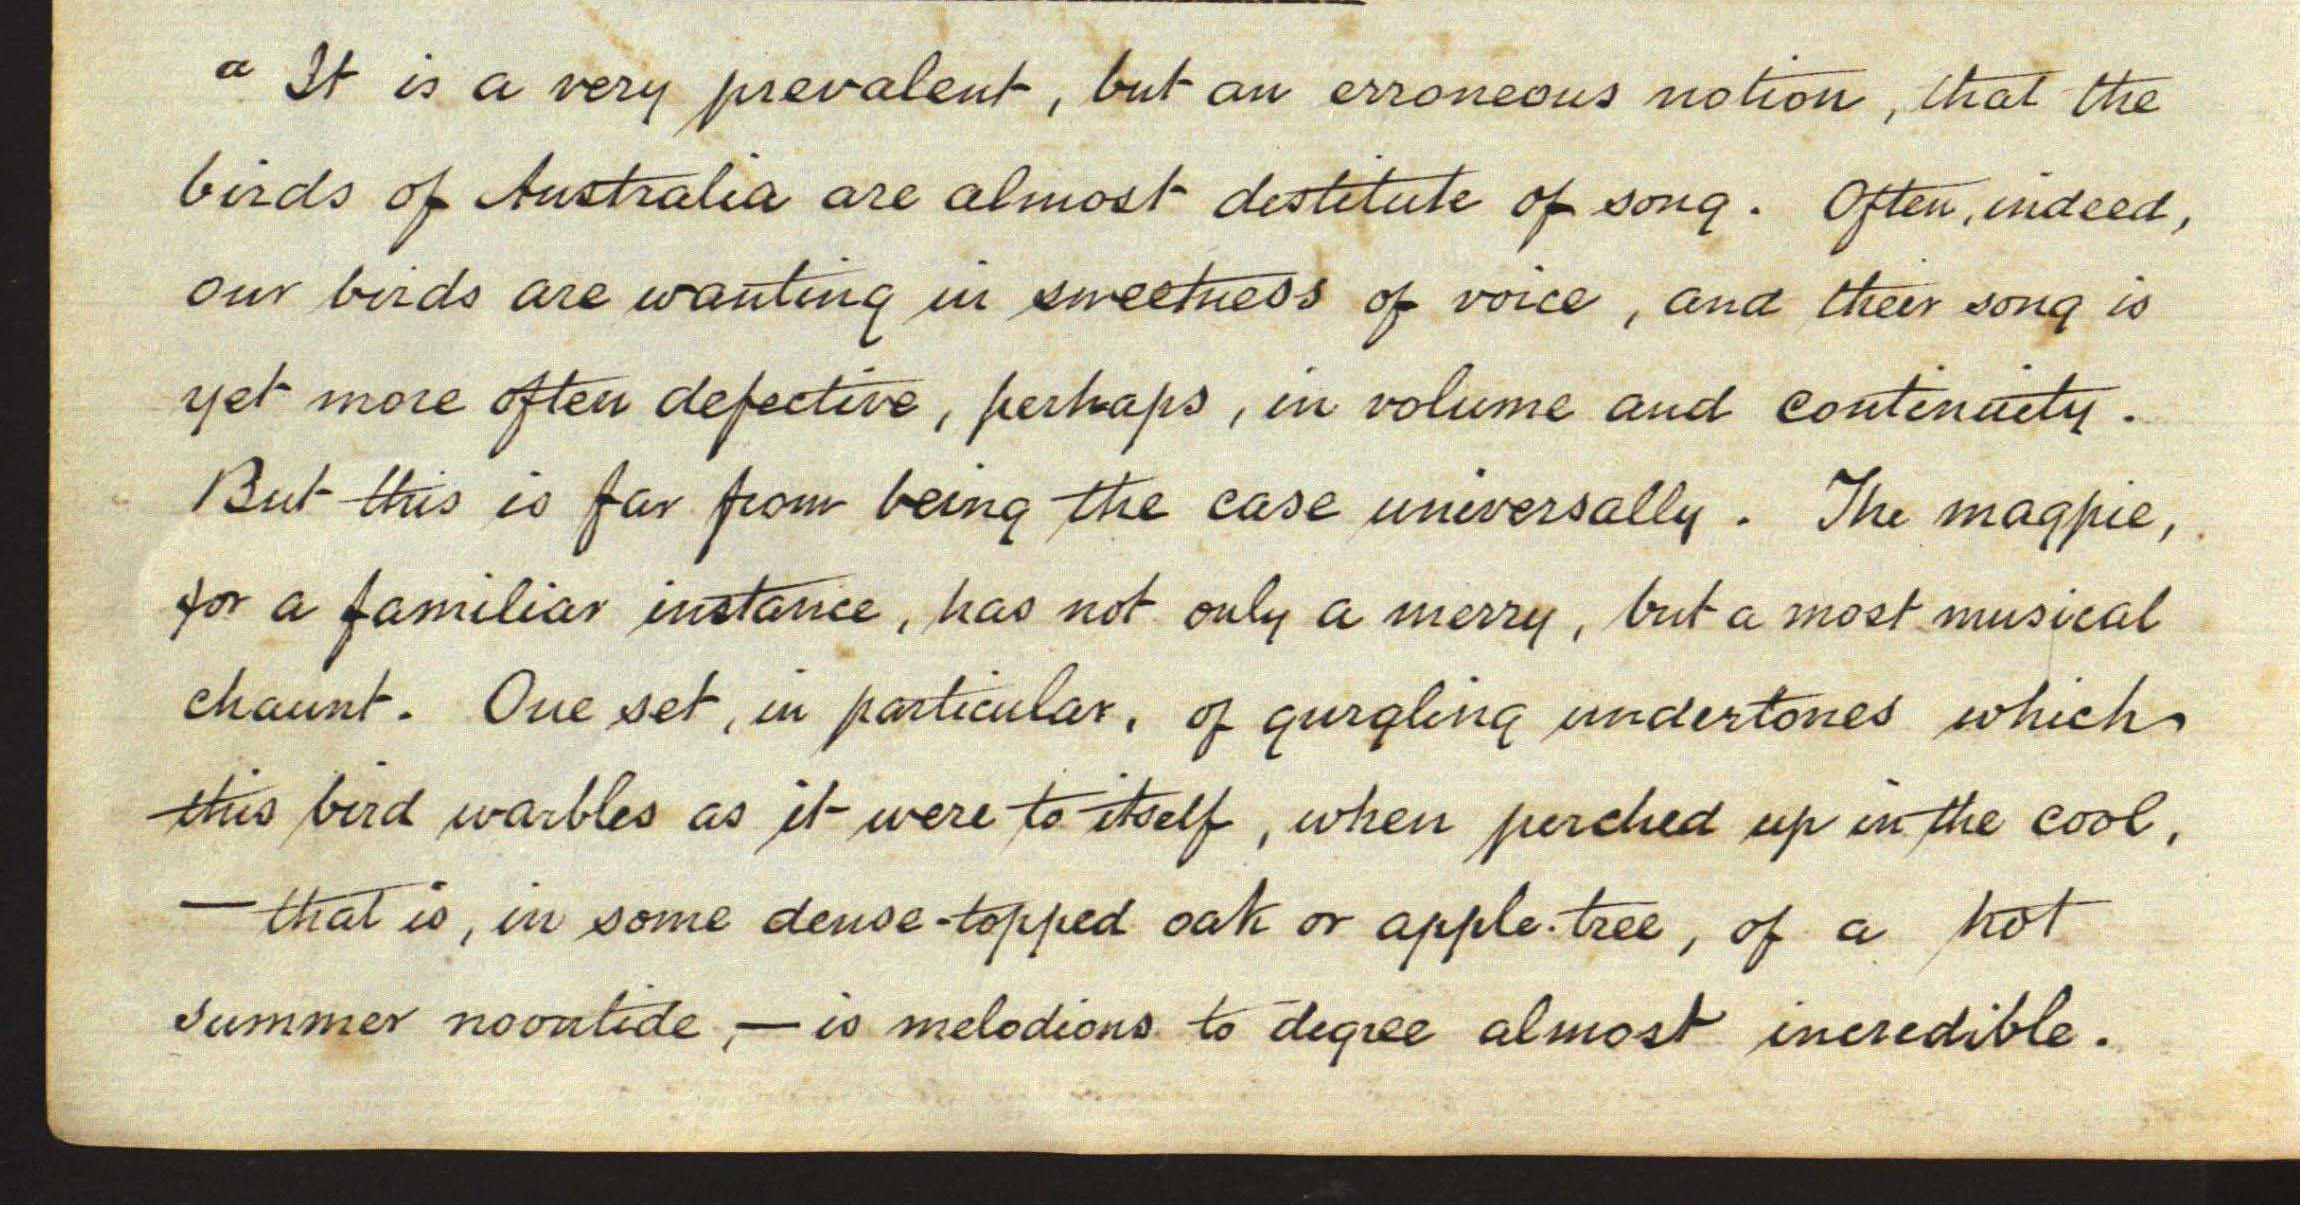 a It is a very prevalent, but an erroneous notion, that the
birds of Australia are almost destitute of song. Often, indeed,
our birds are wanting in sweetness of voice, and their song is
yet more often defective, perhaps, in volume and continuity.
But this is far from being the case universally. The magpie,
for a familiar instance, has not only a merry, but a most musical
chaunt. One set, in particular, of gurgling undertones which
this bird warbles as it were to itself, when perched up in the cool,
— that is, in some dense-topped oak or apple-tree, of a hot
summer noontide, — is melodious to degree almost incredible.